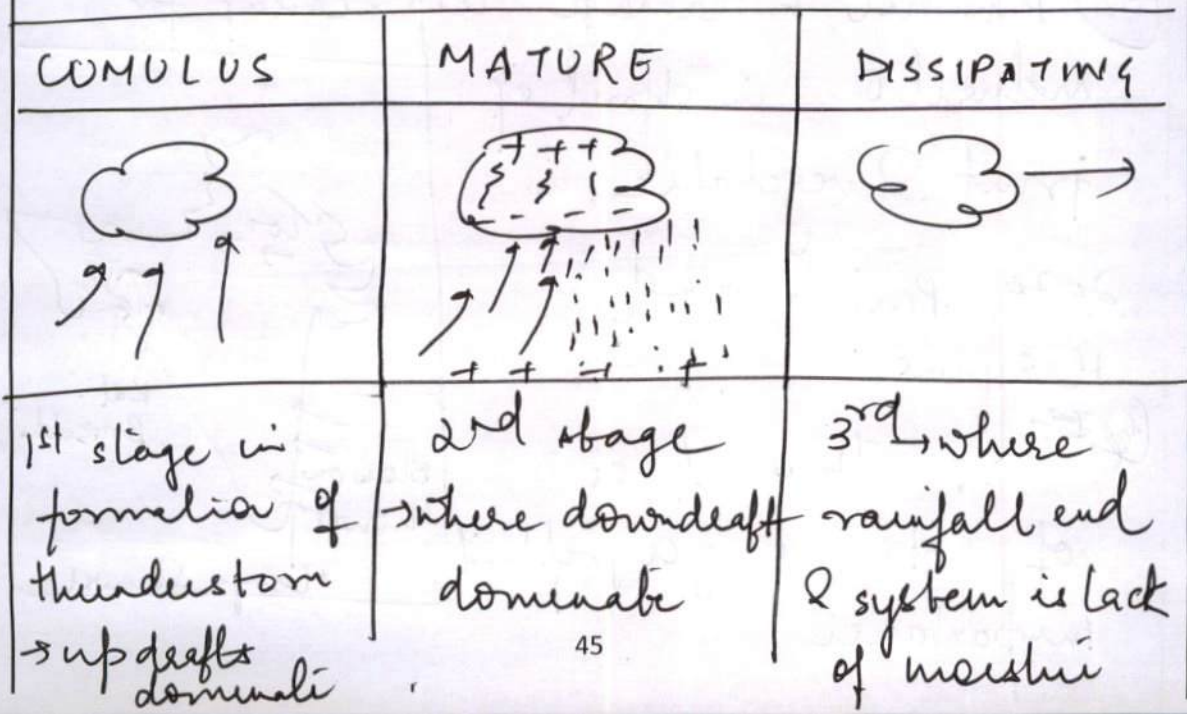 COMULUS
MATURE
DISSIPATING
+ + +
- - - -
+ + + +
1st stage in
formation of
thunderstom
→ updrafts
dominate
2nd stage
→ where downdraft
dominate
3rd → where
rainfall end
& system is lack
of
45